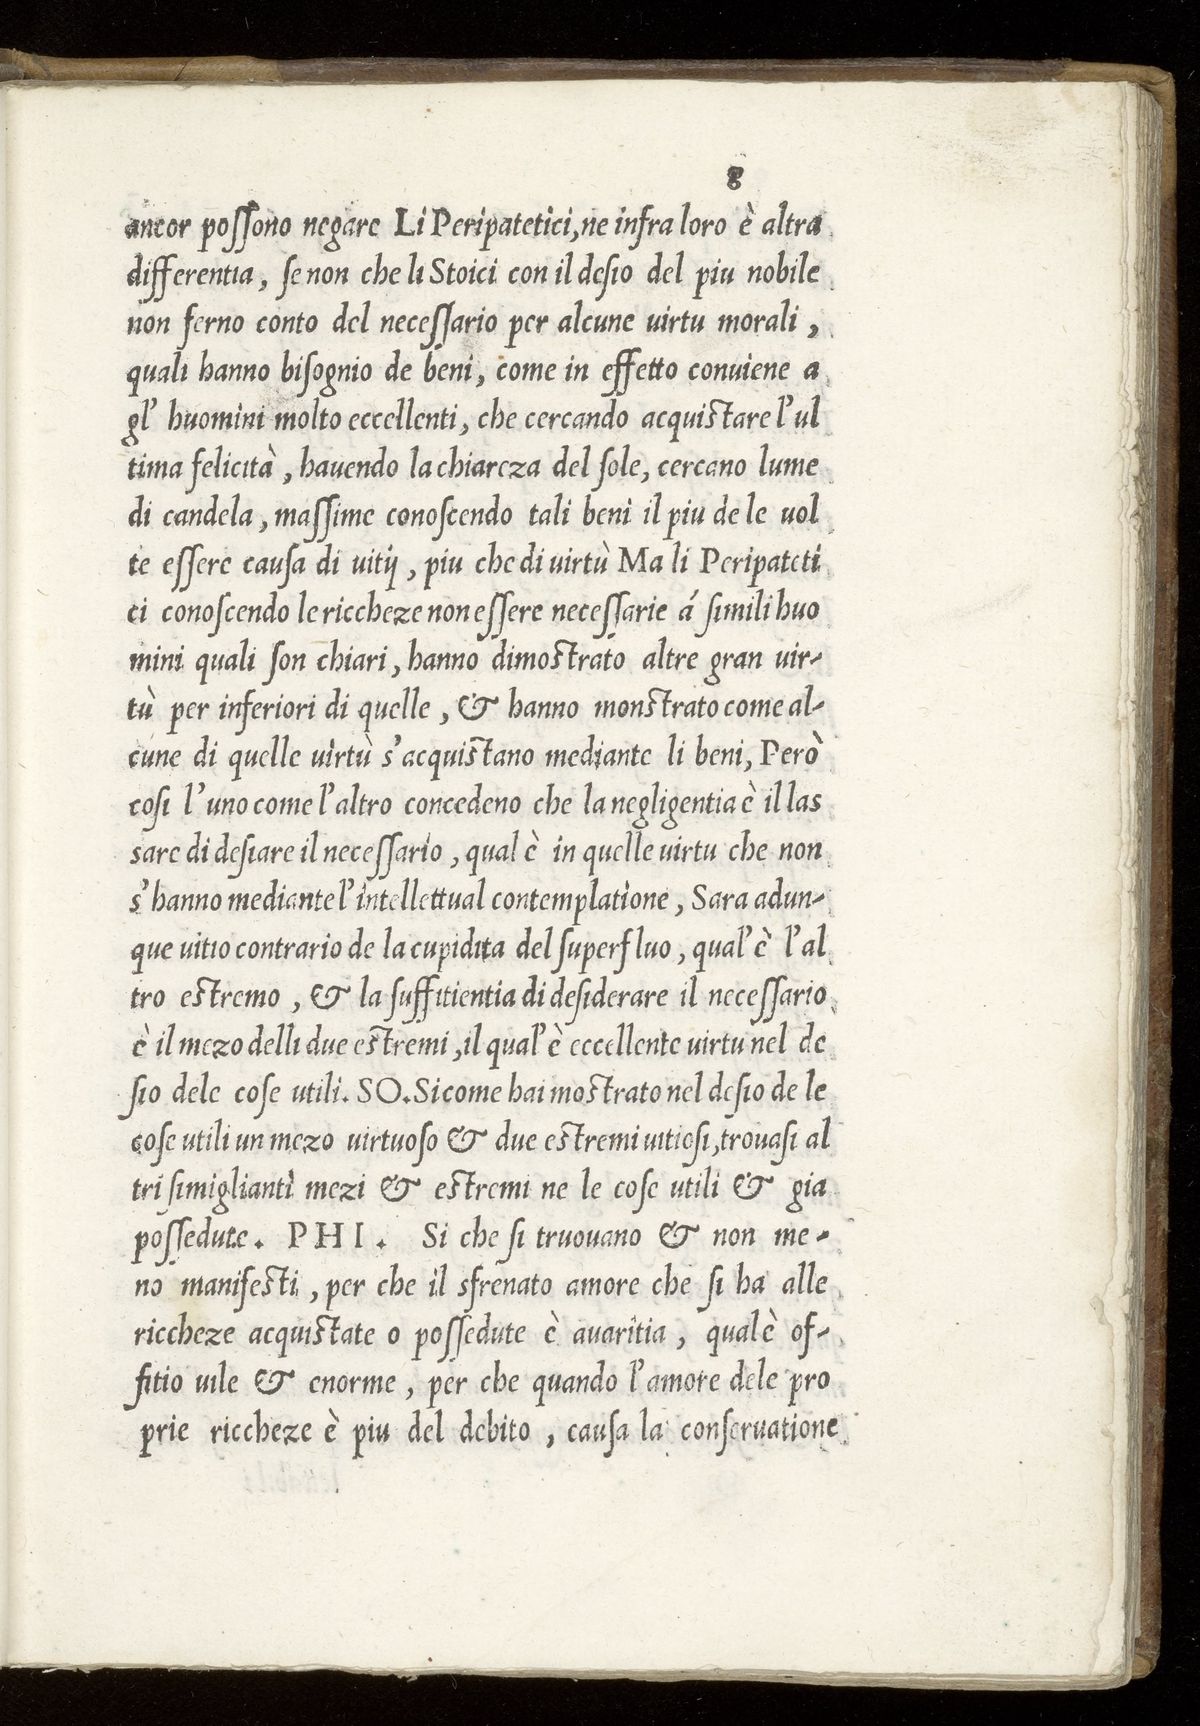 8
ancor possono negare Li Peripatetici, ne infra loro è altra
differentia, se non che li Stoici con il desio del piu nobile
non ferno conto del necessario per alcune uirtu morali,
quali hanno bisognio de beni, come in effetto conuiene a
gl' huomini molto eccellenti, che cercando acquistare l'ul
tima felicità, hauendo la chiareza del sole, cercano lume
di candela, massime conoscendo tali beni il piu de le uol
te essere causa di uitij, piu che di uirtù Ma li Peripateti
ci conoscendo le riccheze non essere necessarie á simili huo
mini quali son chiari, hanno dimostrato altre gran uir-
tù per inferiori di quelle, & hanno monstrato come al-
cune di quelle uirtù s'acquistano mediante li beni, Però
cosi l'uno come l'altro concedeno che la negligentia è il las
sare di desiare il necessario, qual è in quelle uirtu che non
s'hanno mediante l'intellettual contemplatione, Sara adun-
que uitio contrario de la cupidita del superfluo, qual'è l'al
tro estremo, & la suffitientia di desiderare il necessario
è il mezo delli due estremi, il qual'è eccellente uirtu nel de
sio dele cose utili. SO. Si come hai mostrato nel desio de le
cose utili un mezo uirtuoso & due estremi uitiosi, trouasi al
tri simiglianti mezi & estremi ne le cose utili & gia
possedute. PHI. Si che si truouano & non me-
no manifesti, per che il sfrenato amore che si ha alle
riccheze acquistate o possedute è auaritia, qual è of-
fitio uile & enorme, per che quando l'amore dele pro
prie riccheze è piu del debito, causa la conseruatione